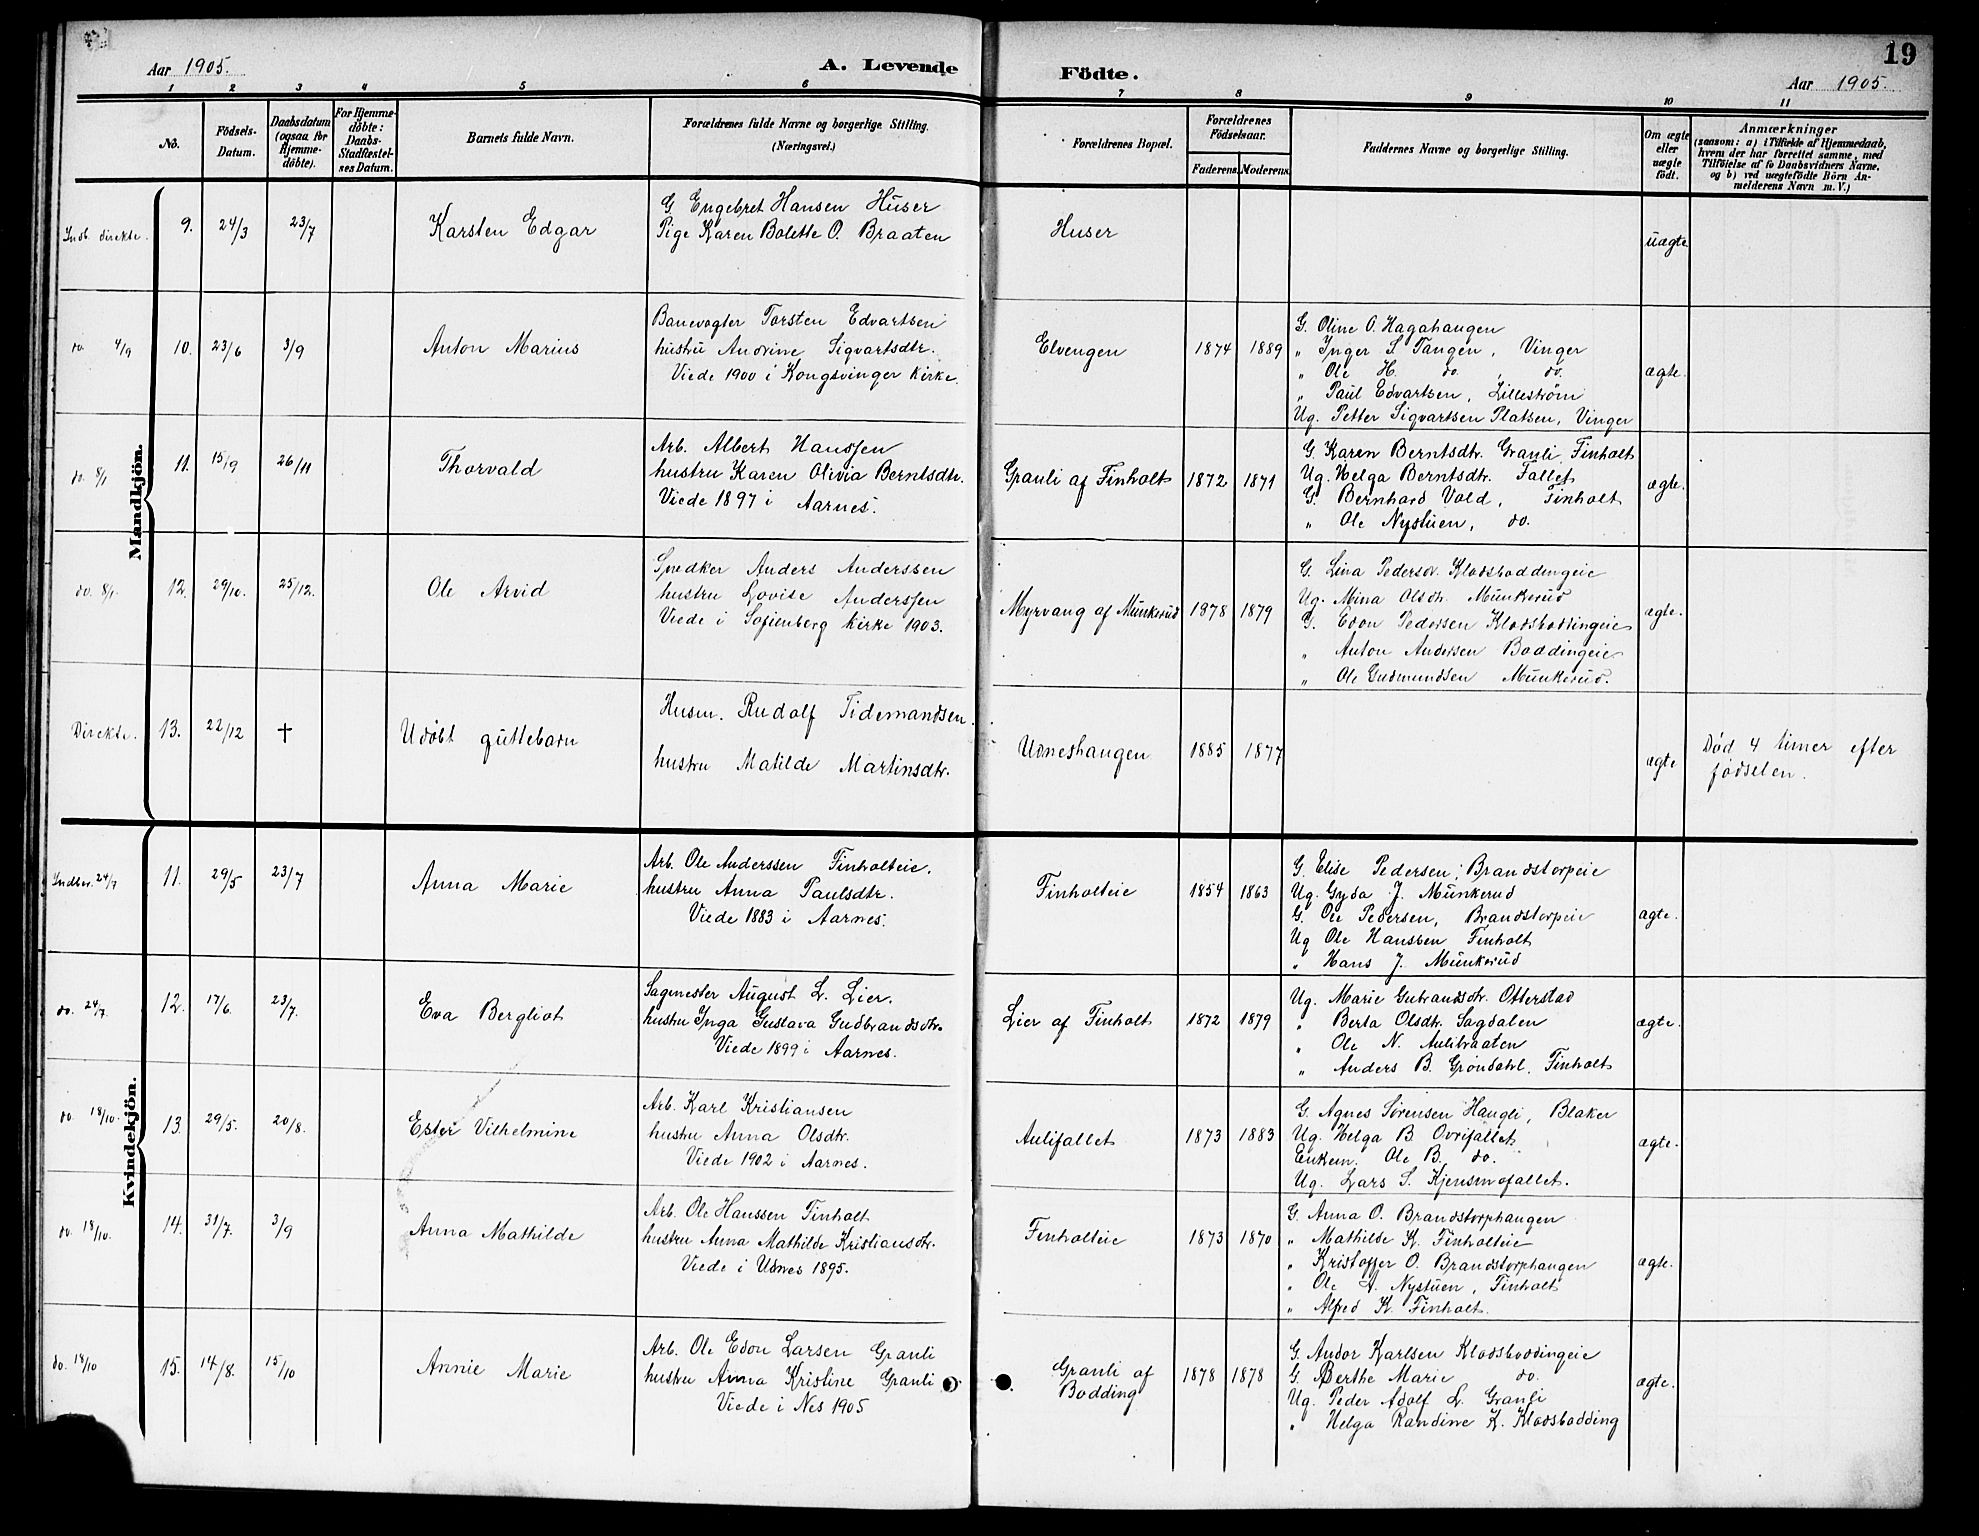 19
Aar 1905.
A. Levende
Födte.
Aar 1905.
1 2 3 4 5 6 7 8 9 10 11
No.
Födsels-
Datum.
Daabsdatum
(ogsaa for
Hjemme-
döbte).
For Hjemme-
döbte:
Daabs-
Stadfæstel-
ses Datum.
Barnets fulde Navn.
Forældrenes fulde Navne og borgerlige Stilling.
(Næringsvei.)
Forældrenes Bopæl.
Forældrenes
Födselsaar.
Faderens. Moderens.
Faddernes Navne og borgerlige Stilling.
Om ægte
eller
uægte
födt.
Anmærkninger
(saasom: a) i Tilfælde af Hjemmedaab,
hvem der har forrettet samme, med
Tilföielse af to Daabsvidners Navne,
og b) ved uægtefödte Börn An-
melderens Navn m. V.)
Mandkjön.
Indb. direkte. 9. 24/3 23/7 Karsten Edgar
G. Engebret Hansen Huser
Pige Karen Bolette O. Braaten
Huser
uægte
do. 4/9 10. 23/6 3/9 Anton Marius
Banevogter Torsten Edvartsen
hustru Andrine Sigvartsdtr.
Viede 1900 i Kongsvinger Kirke.
Elvengen 1874 1889
G. Oline O. Hagahaugen
„ Inger S. Tangen, Vinger
„ Ole H. do. , do.
„ Paul Edvartsen, Lillestrøm
Ug. Petter Sigvartsen Platsen, Vinger
ægte.
do. 8/1 11. 15/9 26/11 Thorvald
Arb. Albert Hanssen
hustru Karen Olivia Berntsdtr.
Viede 1897 i Aarnes.
Granli af Finholt 1872 1871
G. Karen Berntsdtr. Granli, Finholt
Ug. Helga Berntsdtr. Fallet
G. Bernhard Vold, Finholt
„ Ole Nystuen, do.
ægte.
do. 8/1 12. 29/10. 25/12. Ole Arvid
Snedker Anders Anderssen
hustru Lovise Anderssen
Viede i Sofienberg Kirke 1903.
Myrvang af Munkerud 1878 1879
G. Lina Pedersdr. Klodsboddingeie
Ug. Mina Olsdtr. Munkerud
G. Edon Pedersen Klodsboddingeie
„ Anton Andersen Boddingeie
„ Ole Gudmundsen Munkerud.
ægte.
Direkte. 13. 22/12 † Udöbt guttebarn
Husm. Rudolf Tidemandsen.
hustru Matilde Martinsdtr.
Udneshaugen 1885 1877
ægte
Död 4 timer efter
födselen.
Kvindekjön.
Indber. 24/7 11. 29/5 23/7 Anna Marie
Arb. Ole Anderssen Finholteie.
hustru Anna Paulsdtr.
Viede 1883 i Aarnes.
Finholteie 1854 1863
G. Elise Pedersen, Brandstorpeie
Ug. Gyda J. Munkerud
G. Ole Pedersen, Brandstorpeie
Ug Ole Hanssen Finholt
„ Hans J. Munkerud
ægte.
do. 24/7 12. 17/6. 23/7. Eva Bergliot
Sagmester August L. Lier.
hustru Inga Gustava Gudbrandsdtr.
Viede 1899 i Aarnes.
Lier af Finholt 1872 1879
Ug. Marie Gutrandsdtr. Otterstad
„ Berta Olsdtr. Sagdalen
„ Ole N. Aulibraaten
„ Anders B. Grøndahl. Finholt
ægte.
do. 18/10. 13. 29/5. 20/8. Ester Vilhelmine
Arb. Karl Kristiansen
hustru Anna Olsdtr.
Viede 1902 i Aarnes.
Aulifallet 1873 1883
G. Agnes Sørensen Haugli, Blaker
Ug. Helga B. Ovrifallet
Enkem. Ole B. do.
Ug. Lars S. Kjensmofallet.
ægte.
do. 18/10. 14. 31/7. 3/9 Anna Mathilde
Arb. Ole Hanssen Finholt
hustru Anna Mathilde Kristiansdtr.
Viede i Udnes 1895.
Finholteie 1873 1870
G. Anna O. Brandstorphaugen
„ Mathilde K. Finholteie
„ Kristoffer O. Brandstorphaugen
„ Ole A. Nystuen, Finholt
„ Alfred K. Finholt.
ægte.
do. 18/10 15. 14/8. 15/10 Annie Marie
Arb. Ole Edon Larsen Granli
hustru Anna Kristine Granli
Viede i Nes 1905
Granli af
Bodding 1878 1878
G. Andor Karlsen Klodsboddingeie
G. Berthe Marie do.
Ug. Peder Adolf L. Granli
„ Helga Randine K. Klodsbodding
ægte.